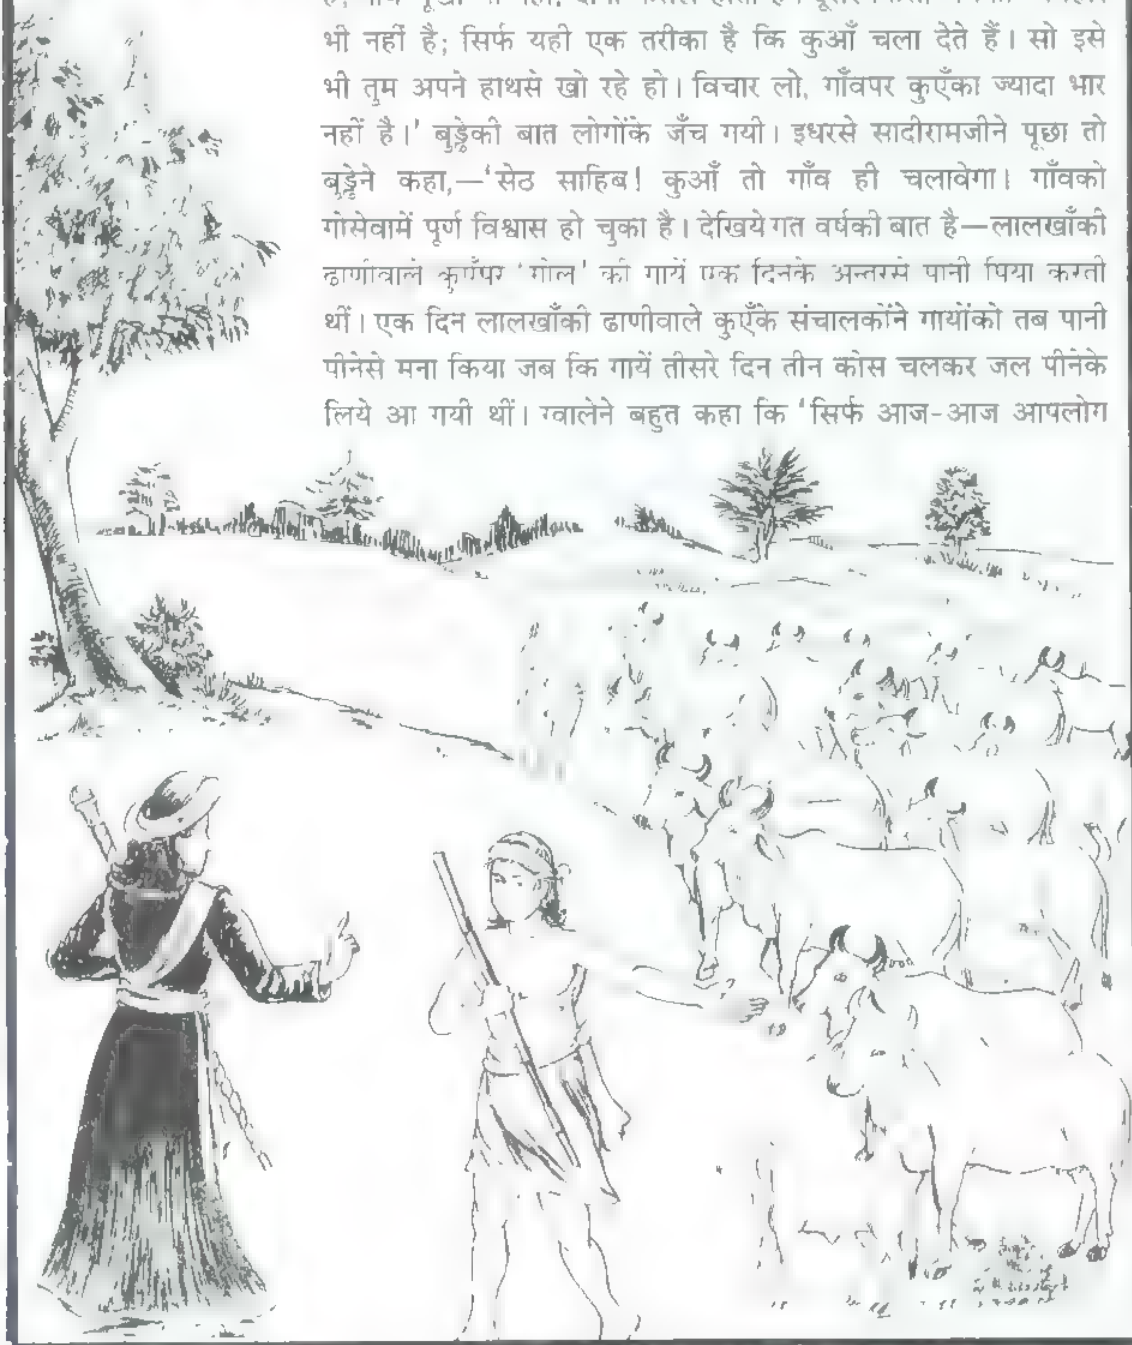 भी नहीं है; सिर्फ यही एक तरीका है कि कुआँ चला देते हैं। सो इसे
भी तुम अपने हाथसे खो रहे हो। विचार लो, गाँवपर कुएँका ज्यादा भार
नहीं है।' बुड्ढेकी बात लोगोंके जँच गयी। इधरसे सादीरामजीने पूछा तो
बुड्ढेने कहा,—'सेठ साहिब! कुआँ तो गाँव ही चलावेगा। गाँवको
गोसेवामें पूर्ण विश्वास हो चुका है। देखिये गत वर्षकी बात है—लालखाँकी
ढाणीवाले कुएँपर 'गोल' की गायें एक दिनके अन्तरसे पानी पिया करती
थीं। एक दिन लालखाँकी ढाणीवाले कुएँके संचालकोंने गायोंको तब पानी
पीनेसे मना किया जब कि गायें तीसरे दिन तीन कोस चलकर जल पीनेके
लिये आ गयी थीं। ग्वालेने बहुत कहा कि 'सिर्फ आज-आज आपलोग